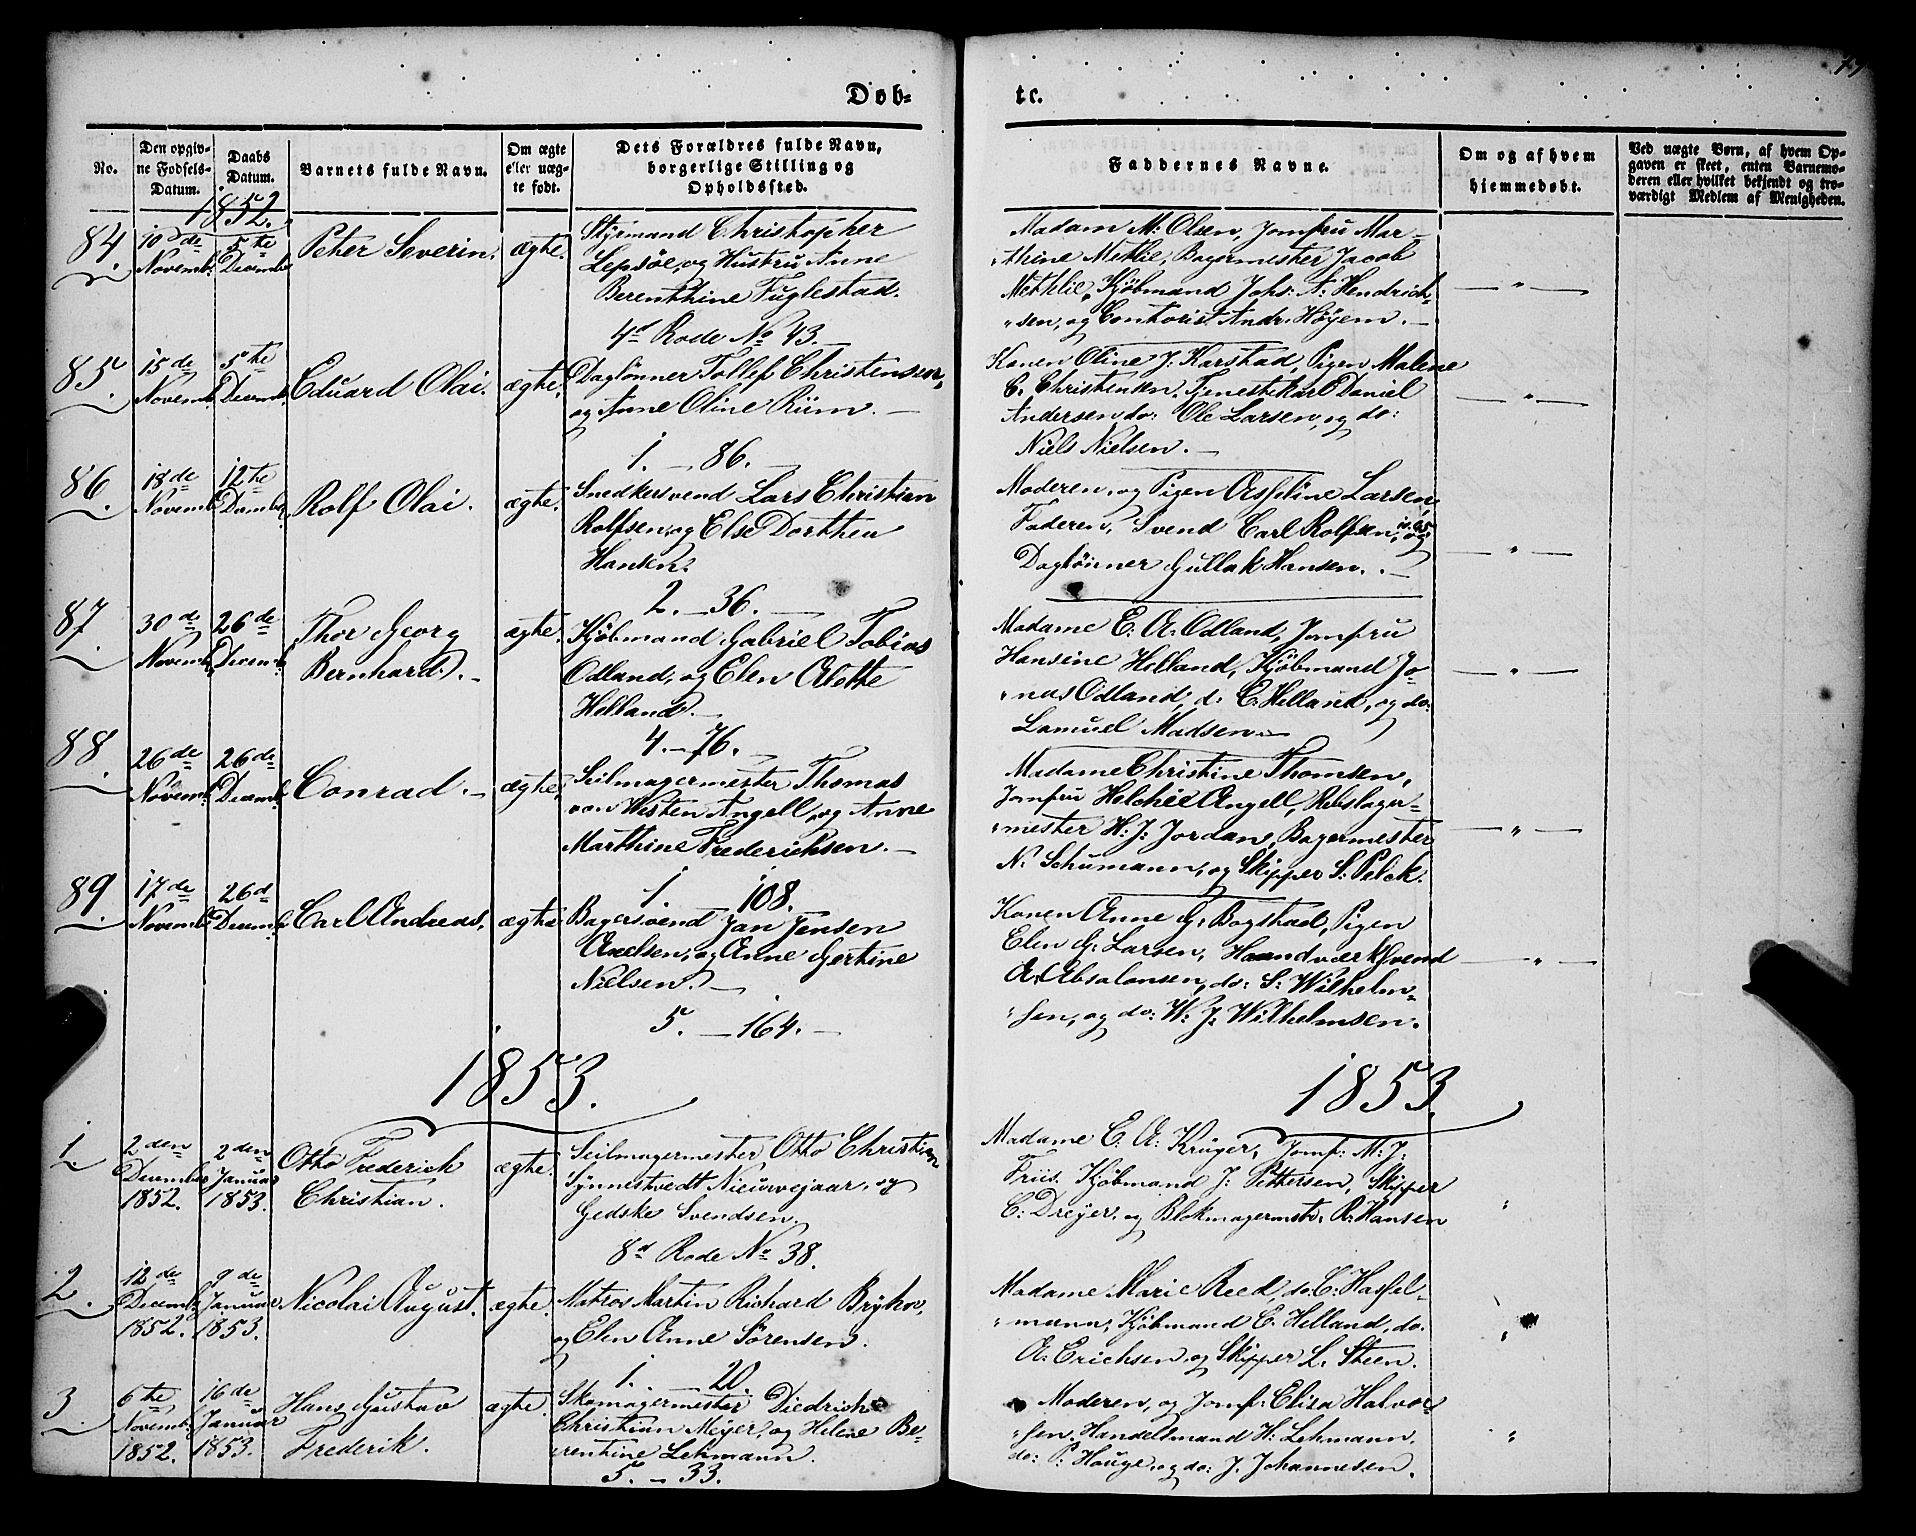 Døb-
tc.
No.
Den opgiv-
ne Fødsels-
Datum.
Daabs
Datum.
Barnets fulde Navn.
Om ægte
eller uæg-
te født.
Dets Forældres fulde Navn,
borgerlige Stilling og
Opholdssted.
Faddernes Navne.
Om og af hvem
hjemmedøbt.
Ved uægte Børn, af hvem Op-
gaven er skeet, enten Barnemo-
deren eller hvilket bekjendt og tro-
værdigt Medlem af Menigheden.
1852.
84.
10de
Novemb.
5te
Decemb.
Peter Severin.
ægte.
Styrmand Christopher
Lepsøe, og Hustru Anne
Berenthine Fuglestad.
4d Rode No 43.
Madam M. Olsen, Jomfru Mar-
"thine Methlie, Bagermester Jacob
Methlie, Kjøbmand Johs: A: Hendrich-
"sen, og Contorist Andr. Høyem. —
— " —
85.
15de
Novemb.
5te
Decemb.
Eduard Olai.
ægte.
Daglønner Tollef Christensen,
og Anne Oline Riim. —
1. — 86. —
Konen Oline J. Karstad, Pigen Malene
C. Christensen, Tjenestekarl Daniel
Andersen, do: Ole Larsen, og do:
Niels Nielsen. —
— " —
86.
18de
Novemb.
12te
Decemb.
Rolf Olai.
ægte.
Snedkersvend Lars Christian
Rolfsen, og Else Dorthea
Hansen.
2. — 36. —
Moderen, og Pigen Asseline Larsen,
Faderen, Svend Carl Rolfsen, og
Daglønner Gullak Hansen. —
— " —
87.
30de
Novemb.
26de
Decemb.
Thor Georg
Bernhard. —
ægte.
Kjøbmand Gabriel Tobias
Odland, og Elen Alette
Helland. —
4. — 76. —
Madame E. A. Odland, Jomfru
Hansine Helland, Kjøbmand Jo-
"nas Odland, d: C. Helland, og do:
Samuel Madsen. —
— " —
88.
26de
Novemb.
26de
Decemb.
Conrad. —
ægte.
Seilmagermester Thomas
von Westen Angell, og Anne
Marthine Frederichsen. —
1. 108.
Madame Christine Thomsen,
Jomfru Helchie Angell, Rebslager-
"mester H: J: Jordan, Bagermester
N. Schumann, og Skipper S. Pelck.
— " —
89.
17de
Novemb.
26d
Decemb.
Carl Andreas.
ægte
Bagersvend Jan Jensen
Axelsen, og Anne Gertine
Nielsen. —
5. — 164. —
Konen Anne G. Bogstad, Pigen
Elen G. Larsen, Haandværksvend
A. Absalonsen, do: S. Wilhelm-
"sen, og do: W. J. Wilhelmsen.
— " —
1853.
1853.
1
2den
Decembr
1852.
2den
Januar
1853.
Otto Frederich
Christian.
ægte.
Seilmagermester Otto Christian
Synnestvedt Nieuwejaar, og
Gedske Svendsen.
8d Rode No 38.
Madame C. A. Krüger, Jomf: M. J:
Friis. Kjøbmand J. Pettersen, Skipper
C. Dreyer, og Blokmagermstr. R. Hansen
"
2.
12de
Decemb.
1852.
9de
Januar
1853.
Nicolai August.
ægte.
Matros Martin Richard
og Elen Anne Sørensen.
1. 20.
Madame Marie Reed, do: C. Hassel-
"mann, Kjøbmand C. Helland, do.
A. Erichsen, og Skipper L. Steen.
"
3.
6te
Novemb.
1852.
16de
Januar
1853.
Hans Gustav
Frederik.
ægte.
Skomagermester Diedrich
Christian Meyer, og Helene Be-
rentine Lehmann.
5. — 33.
Moderen, og Jomf: Eliza Halvor-
"sen, Handelsmand H. Lehmann,
do: P. Hauge, og do: J. Johannesen.
"